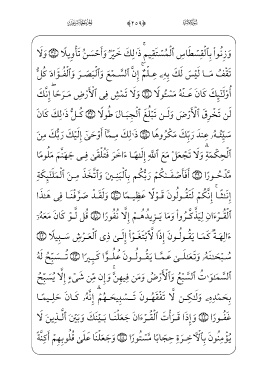 وَزِنُوا۟ بِٱلْقِسْطَاسِ ٱلْمُسْتَقِيمِ ۚ ذَٰلِكَ خَيْرٌ وَأَحْسَنُ تَأْوِيلًا ۝ وَلَا
تَقْفُ مَا لَيْسَ لَكَ بِهِۦ عِلْمٌ ۚ إِنَّ ٱلسَّمْعَ وَٱلْبَصَرَ وَٱلْفُؤَادَ كُلُّ
أُو۟لَٰٓئِكَ كَانَ عَنْهُ مَسْـُٔولًا ۝ وَلَا تَمْشِ فِى ٱلْأَرْضِ مَرَحًا ۖ إِنَّكَ
لَن تَخْرِقَ ٱلْأَرْضَ وَلَن تَبْلُغَ ٱلْجِبَالَ طُولًا ۝ كُلُّ ذَٰلِكَ كَانَ
سَيِّئُهُۥ عِندَ رَبِّكَ مَكْرُوهًا ۝ ذَٰلِكَ مِمَّآ أَوْحَىٰٓ إِلَيْكَ رَبُّكَ مِنَ
ٱلْحِكْمَةِ ۗ وَلَا تَجْعَلْ مَعَ ٱللَّهِ إِلَٰهًا ءَاخَرَ فَتُلْقَىٰ فِى جَهَنَّمَ مَلُومًا
مَّدْحُورًا ۝ أَفَأَصْفَىٰكُمْ رَبُّكُم بِٱلْبَنِينَ وَٱتَّخَذَ مِنَ ٱلْمَلَٰٓئِكَةِ
إِنَٰثًا ۚ إِنَّكُمْ لَتَقُولُونَ قَوْلًا عَظِيمًا ۝ وَلَقَدْ صَرَّفْنَا فِى هَٰذَا
ٱلْقُرْءَانِ لِيَذَّكَّرُوا۟ وَمَا يَزِيدُهُمْ إِلَّا نُفُورًا ۝ قُل لَّوْ كَانَ مَعَهُۥٓ
ءَالِهَةٌ كَمَا يَقُولُونَ إِذًا لَّٱبْتَغَوْا۟ إِلَىٰ ذِى ٱلْعَرْشِ سَبِيلًا ۝
سُبْحَٰنَهُۥ وَتَعَٰلَىٰ عَمَّا يَقُولُونَ عُلُوًّا كَبِيرًا ۝ تُسَبِّحُ لَهُ
ٱلسَّمَٰوَٰتُ ٱلسَّبْعُ وَٱلْأَرْضُ وَمَن فِيهِنَّ ۚ وَإِن مِّن شَىْءٍ إِلَّا يُسَبِّحُ
بِحَمْدِهِۦ وَلَٰكِن لَّا تَفْقَهُونَ تَسْبِيحَهُمْ ۗ إِنَّهُۥ كَانَ حَلِيمًا
غَفُورًا ۝ وَإِذَا قَرَأْتَ ٱلْقُرْءَانَ جَعَلْنَا بَيْنَكَ وَبَيْنَ ٱلَّذِينَ لَا
يُؤْمِنُونَ بِٱلْـَٔاخِرَةِ حِجَابًا مَّسْتُورًا ۝ وَجَعَلْنَا عَلَىٰ قُلُوبِهِمْ أَكِنَّةً